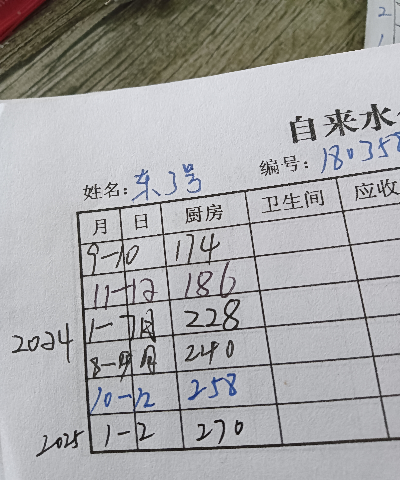 自来水
姓名: 东3号 编号: 180358
月 日 厨房 卫生间 应收
9-10 174
11-12 186
2024 1-7月 228
8-9月 240
10-12 258
2025 1-2 270